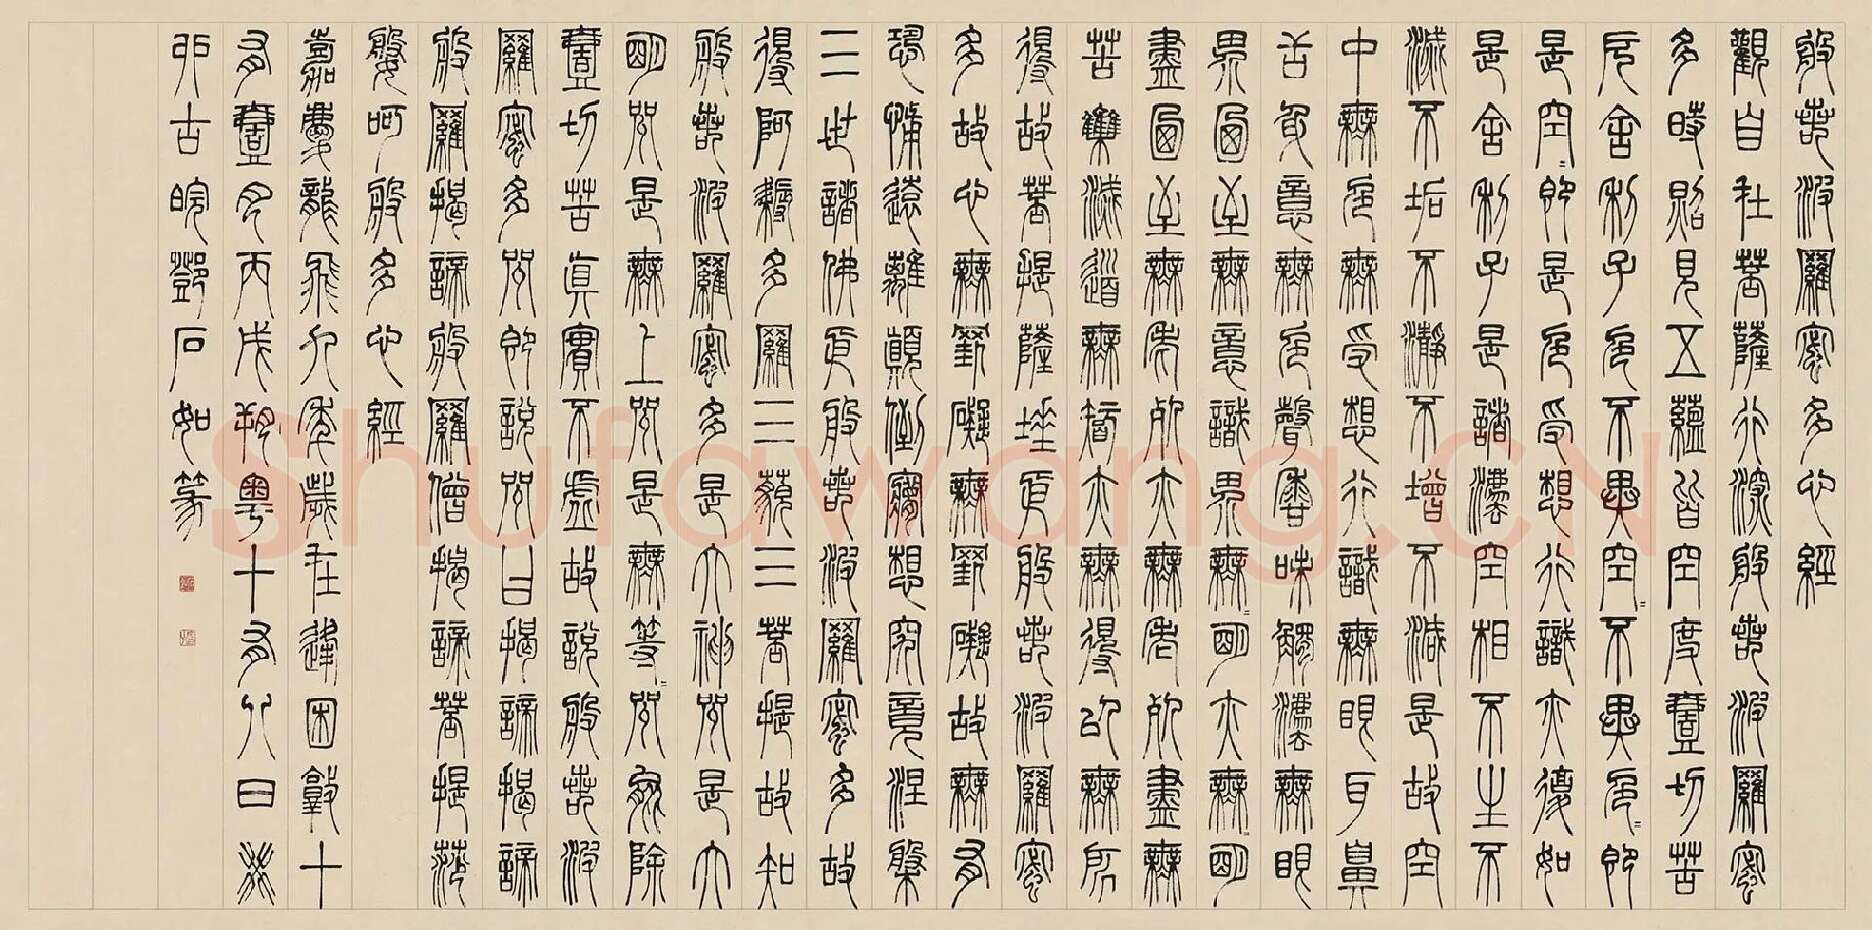 般若波羅蜜多心經
觀自在菩薩行深般若波羅蜜
多時照見五蘊皆空度壹切苦
厄舍利子色不異空=不異色=即
是空=即是色受想行識亦復如
是舍利子是諸法空相不生不
滅不垢不瀞不增不減是故空
中無色無受想行識無眼耳鼻
舌身意無色聲香味觸法無眼
界迺至無意識界無=明亦無=明
盡迺至無老死亦無老死盡無
苦集滅道無智亦無得以無所
得故菩提薩埵依般若波羅蜜
多故心無罣礙無罣礙故無有
恐怖遠離顛倒夢想究竟涅槃
三世諸佛依般若波羅蜜多故
得阿耨多羅三藐三菩提故知
般若波羅蜜多是大神咒是大
明咒是無上咒是無等=咒能除
壹切苦真實不虛故說般若波
羅蜜多咒即說咒曰揭諦揭諦
般羅揭諦般羅僧揭諦菩提莎
媻呵般多心經
嘉慶龍飛九年歲在逢困敦十
有壹月丙戌朔粵十有八日癸
卯古皖鄧石如篆
Shufawang.CN